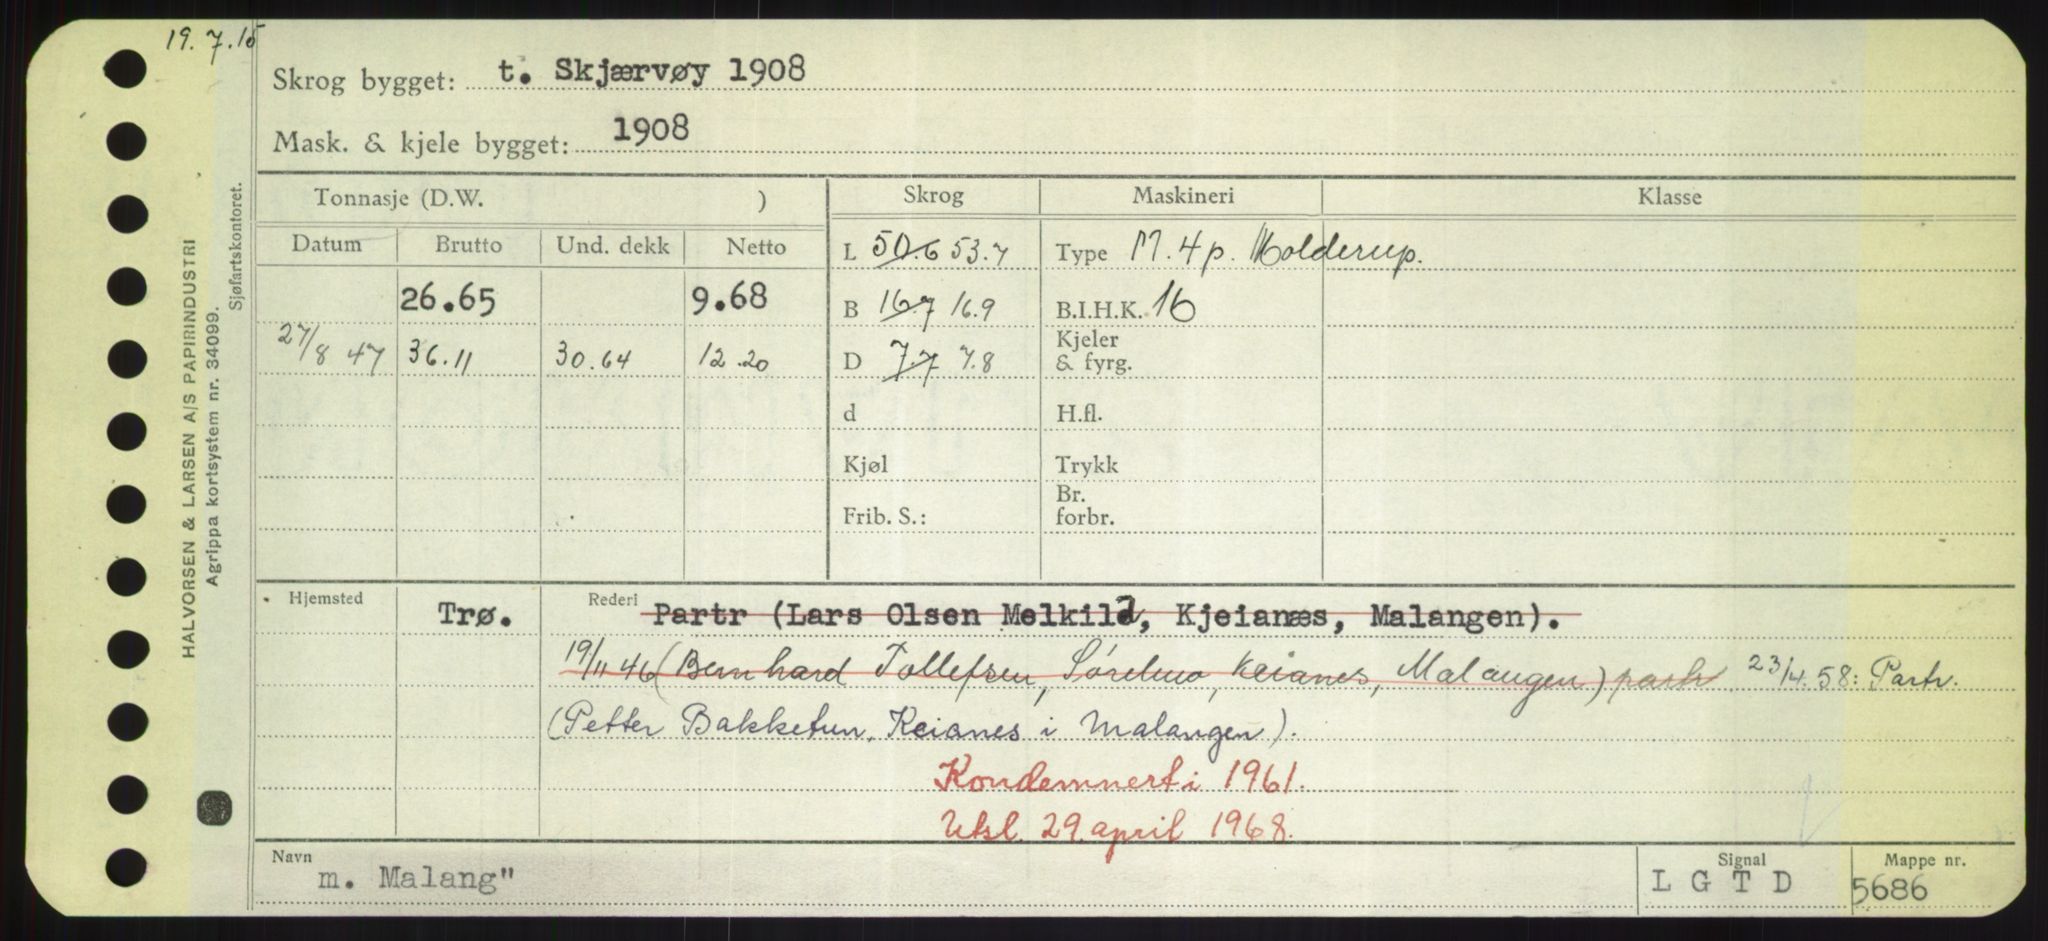 19.7.15
Skrog bygget: t. Skjærvøy 1908
Mask. & kjele bygget: 1908
HALVORSEN & LARSEN A/S PAPIRINDUSTRI
Agrippa kortsystem nr. 34099.
Sjøfartskontoret.
Tonnasje (D.W. ) Skrog Maskineri Klasse
Datum Brutto Und. dekk Netto L 50.6 53.7 Type M. 4 p. Molderup.
26.65 9.68 B 16.7 16.9 B.I.H.K. 16
27/8 47 36.11 30.64 12.20 D 7.7 7.8 Kjeler & fyrg.
d H.fl.
Kjøl Trykk
Frib. S.: Br. forbr.
Hjemsted Trø. Rederi Partr (Lars Olsen Melkild, Kjeianæs, Malangen).
19/11 46 (Bernhard Tollefsen, Sørelmo, Keianes, Malangen) partr 23/4.58: Partr.
(Petter Bakketun, Keianes i Malangen).
Kondemnert i 1961.
Utsl. 29. april 1968.
Navn Signal Mappe nr.
m. Malang" L G T D 5686